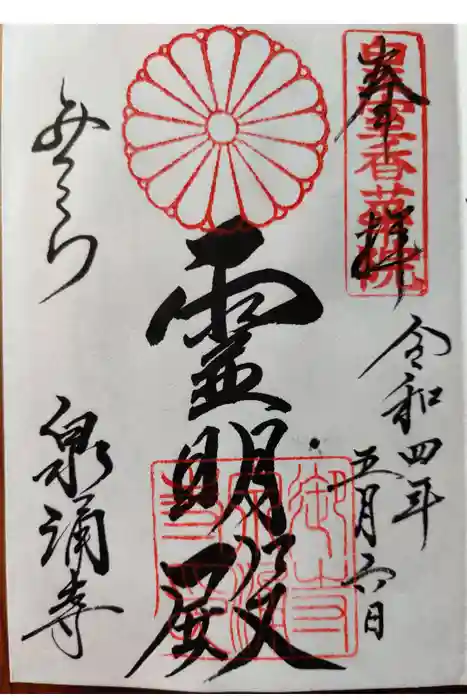 奉拝
皇室香華院
令和四年
五月六日
霊明殿
みてら
泉涌寺